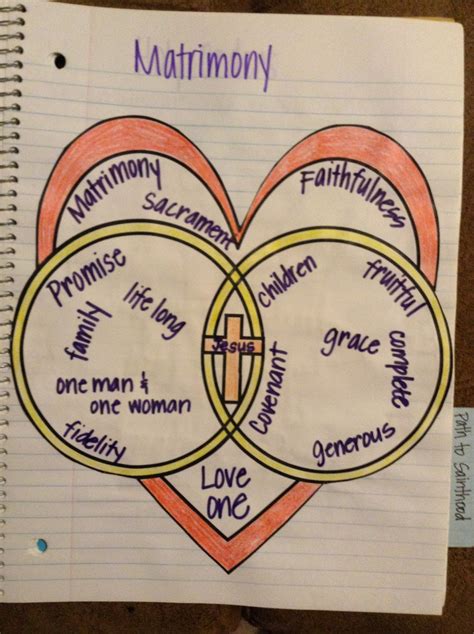 Matrimony
Matrimony
Sacrament
Faithfulness
Promise
life long
family
one man &
one woman
fidelity
Jesus
children
fruitful
grace
complete
Covenant
generous
Love
one
Path to Sainthood